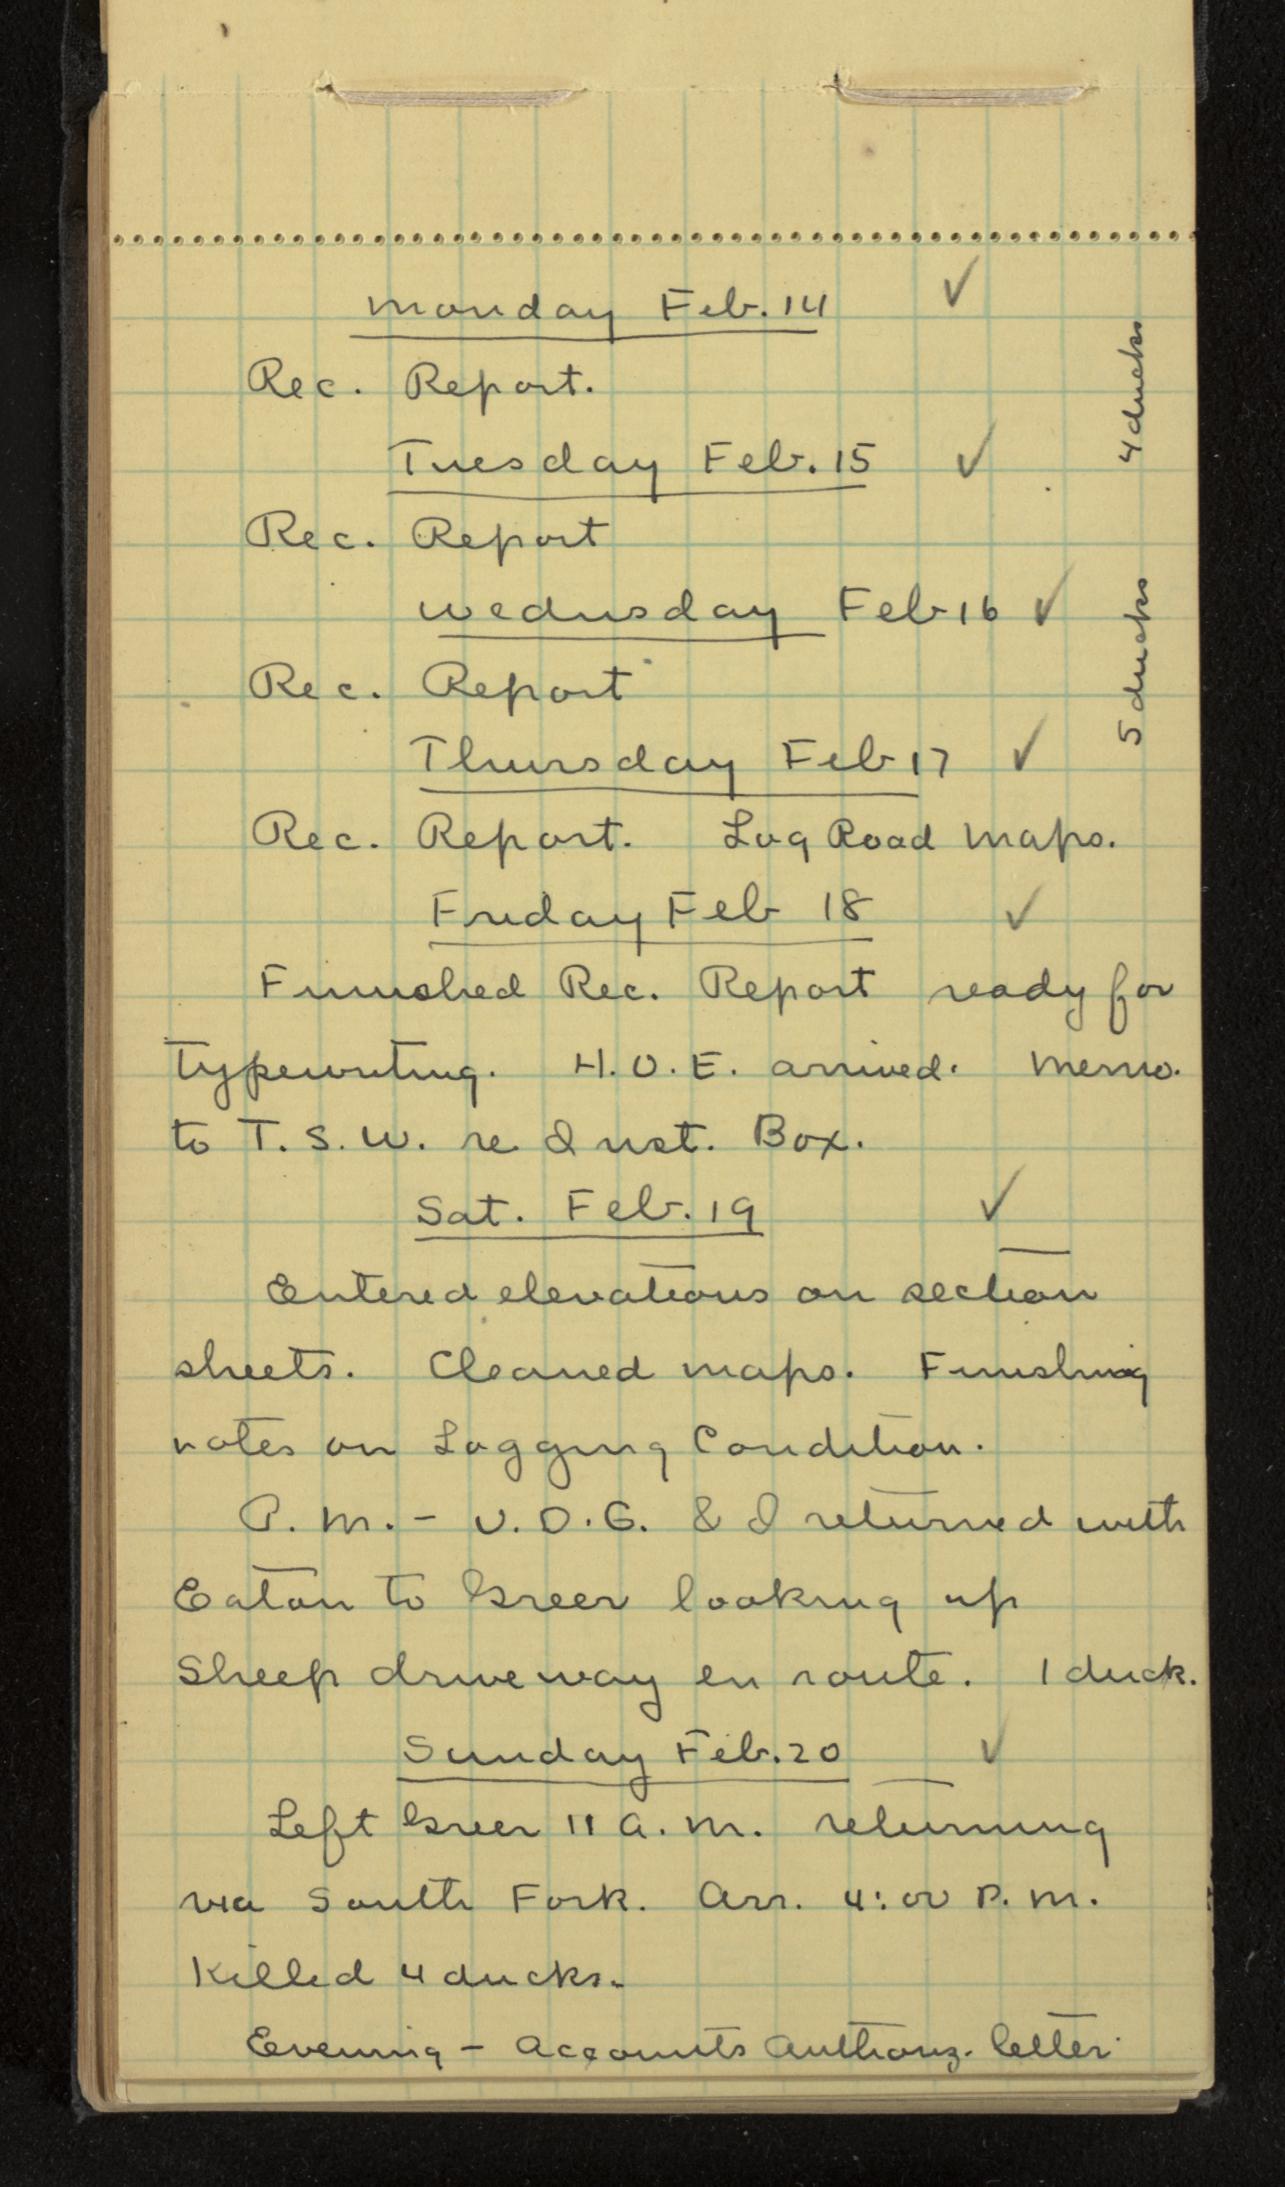 Monday Feb. 14 ✓
Rec. Report.
4 ducks
Tuesday Feb. 15 ✓
Rec. Report
Wednsday Feb 16 ✓
5 ducks
Rec. Report
Thursday Feb 17 ✓
Rec. Report. Log Road Maps.
Friday Feb 18 ✓
Finished Rec. Report ready for
typewriting. H.O.E. arrived. Memo.
to T.S.W. re Inst. Box.
Sat. Feb. 19 ✓
Entered elevations on section
sheets. Cleaned maps. Finishing
notes on Logging Condition.
P.M. - J.D.G. & I returned with
Eaton to Greer looking up
Sheep driveway en route. 1 duck.
Sunday Feb. 20 ✓
Left Greer 11 A.M. returning
via South Fork. Arr. 4:00 P.M.
Killed 4 ducks.
Evening - Accounts Authoriz. letter